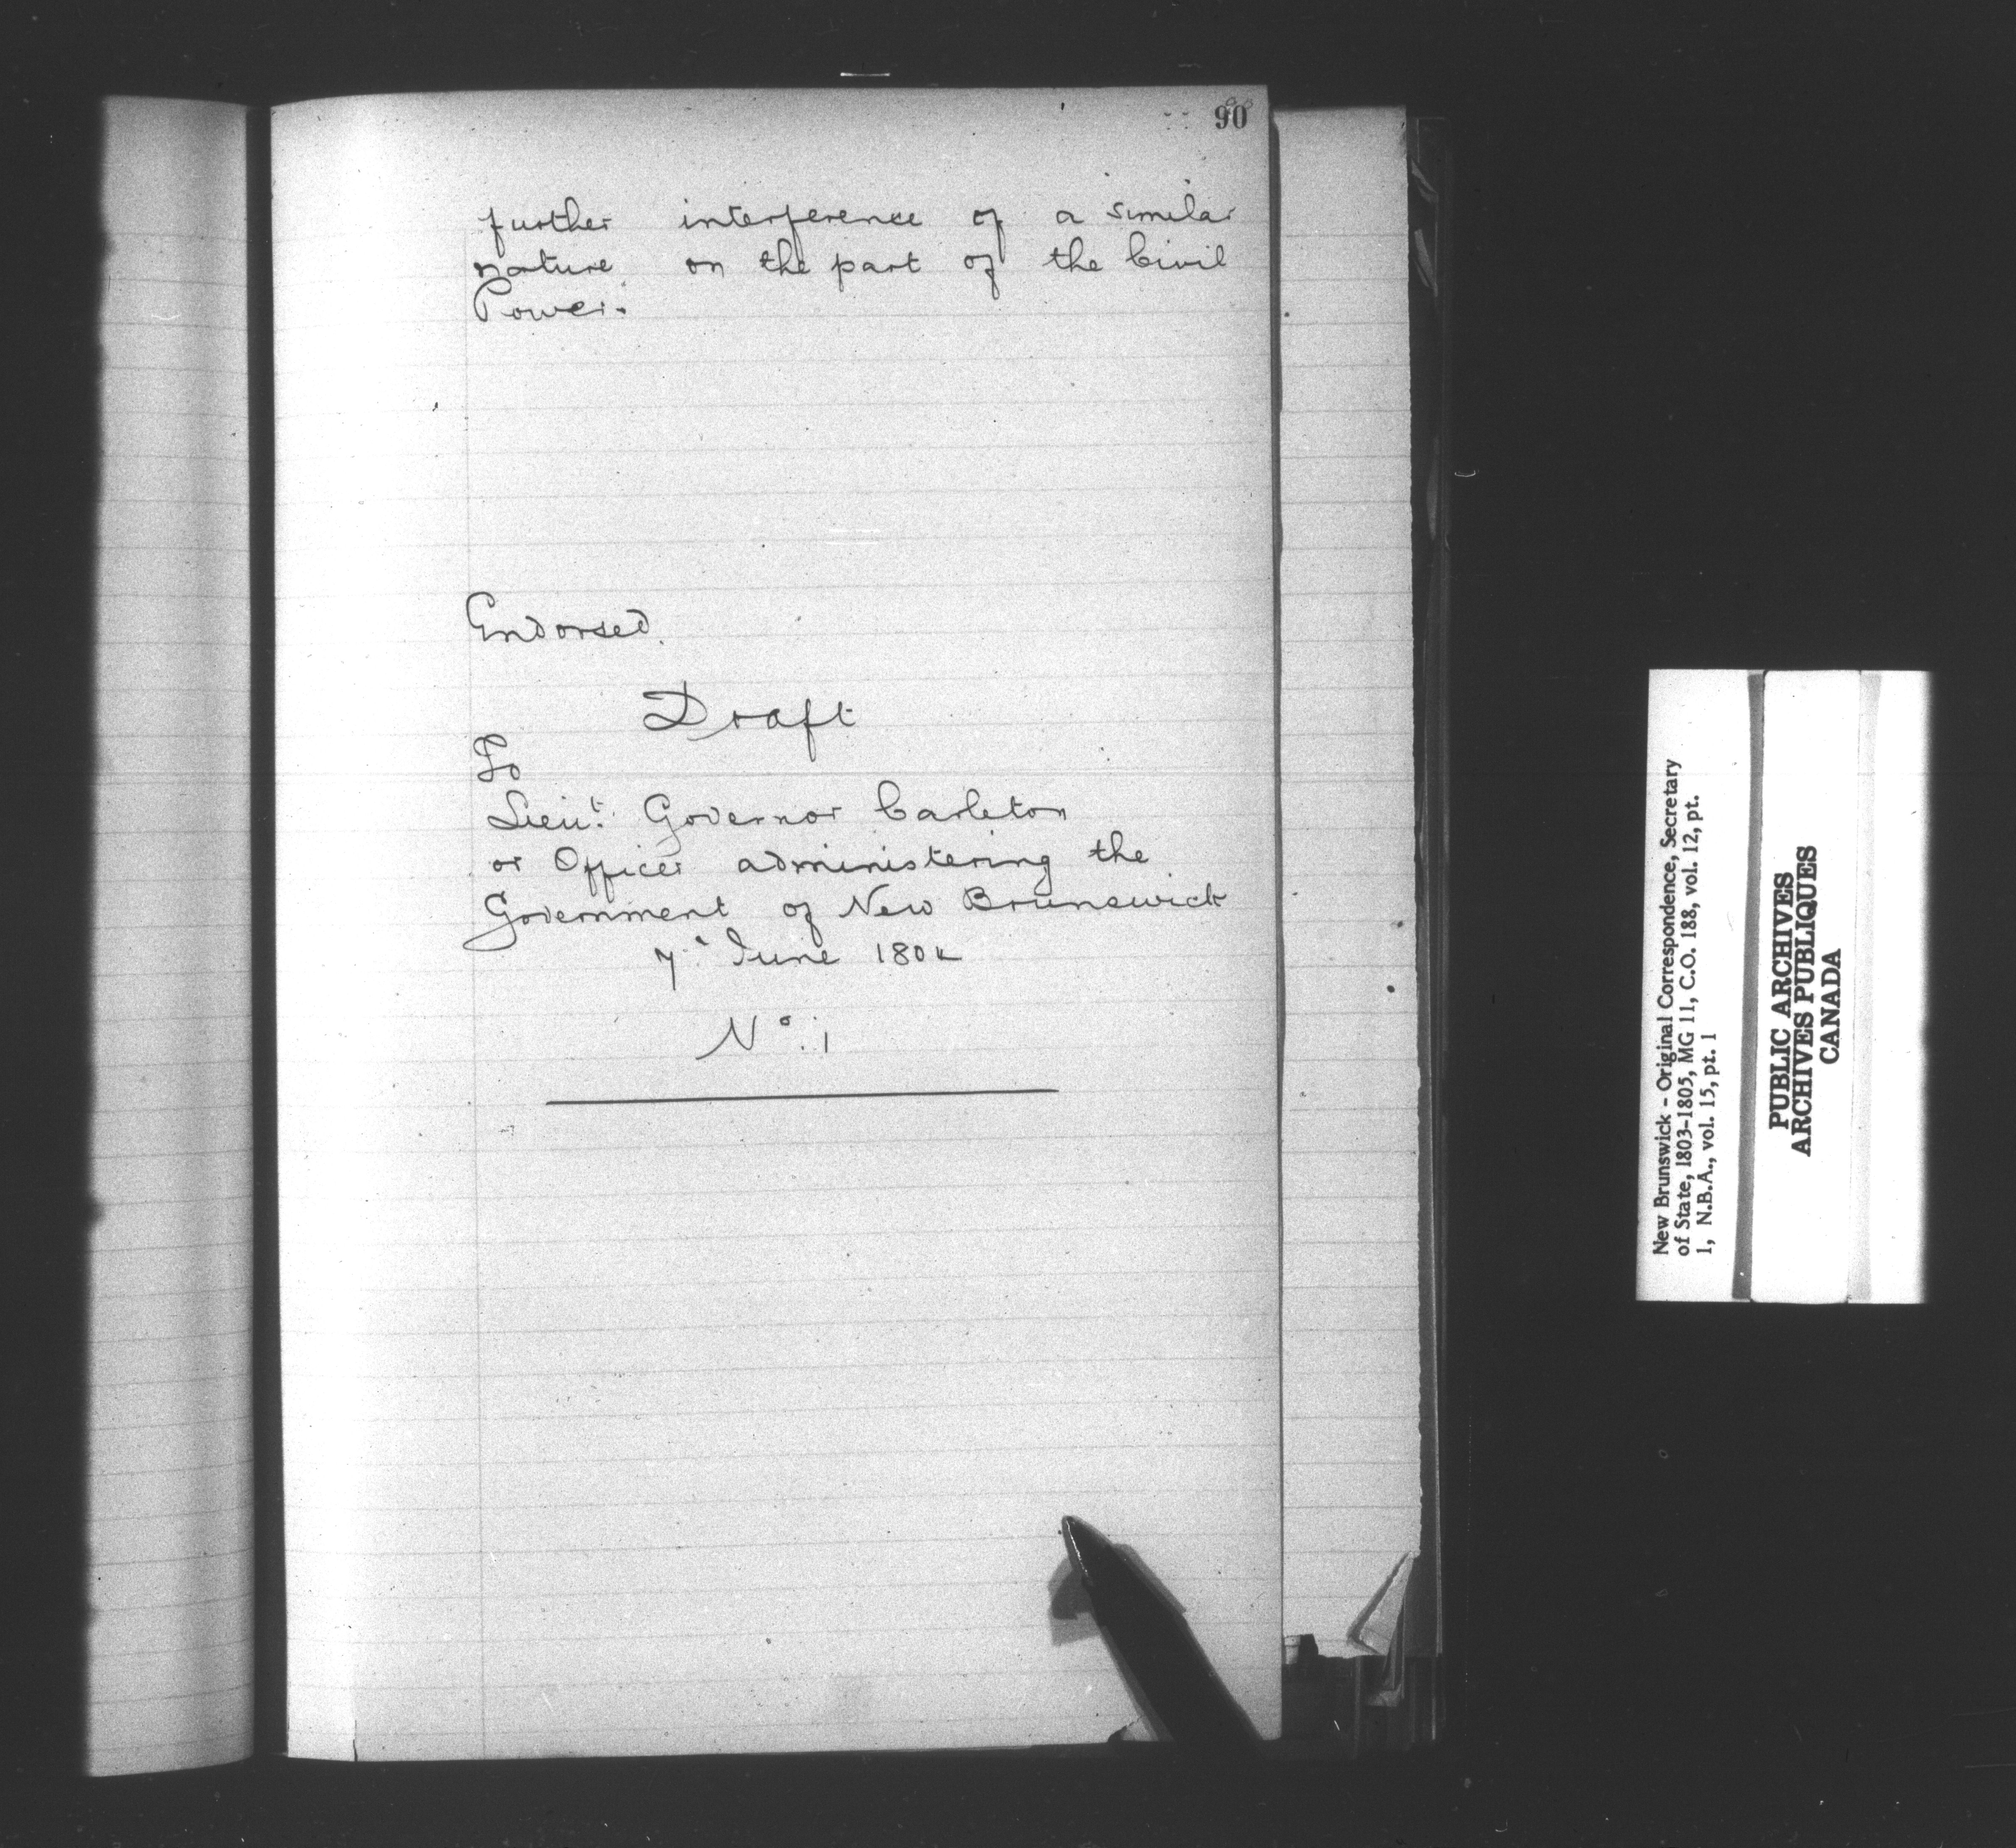 90
further interference of a similar
nature on the part of the Civil
Power.
Endorsed.
Draft
To
Lieut. Governor Carleton
or Officer administering the
Government of New Brunswick
7 June 1804
No. 1
New Brunswick - Original Correspondence, Secretary
of State, 1803-1805, MG 11, C.O. 188, vol. 12, pt.
1, N.B.A., vol. 15, pt. 1
PUBLIC ARCHIVES
ARCHIVES PUBLIQUES
CANADA